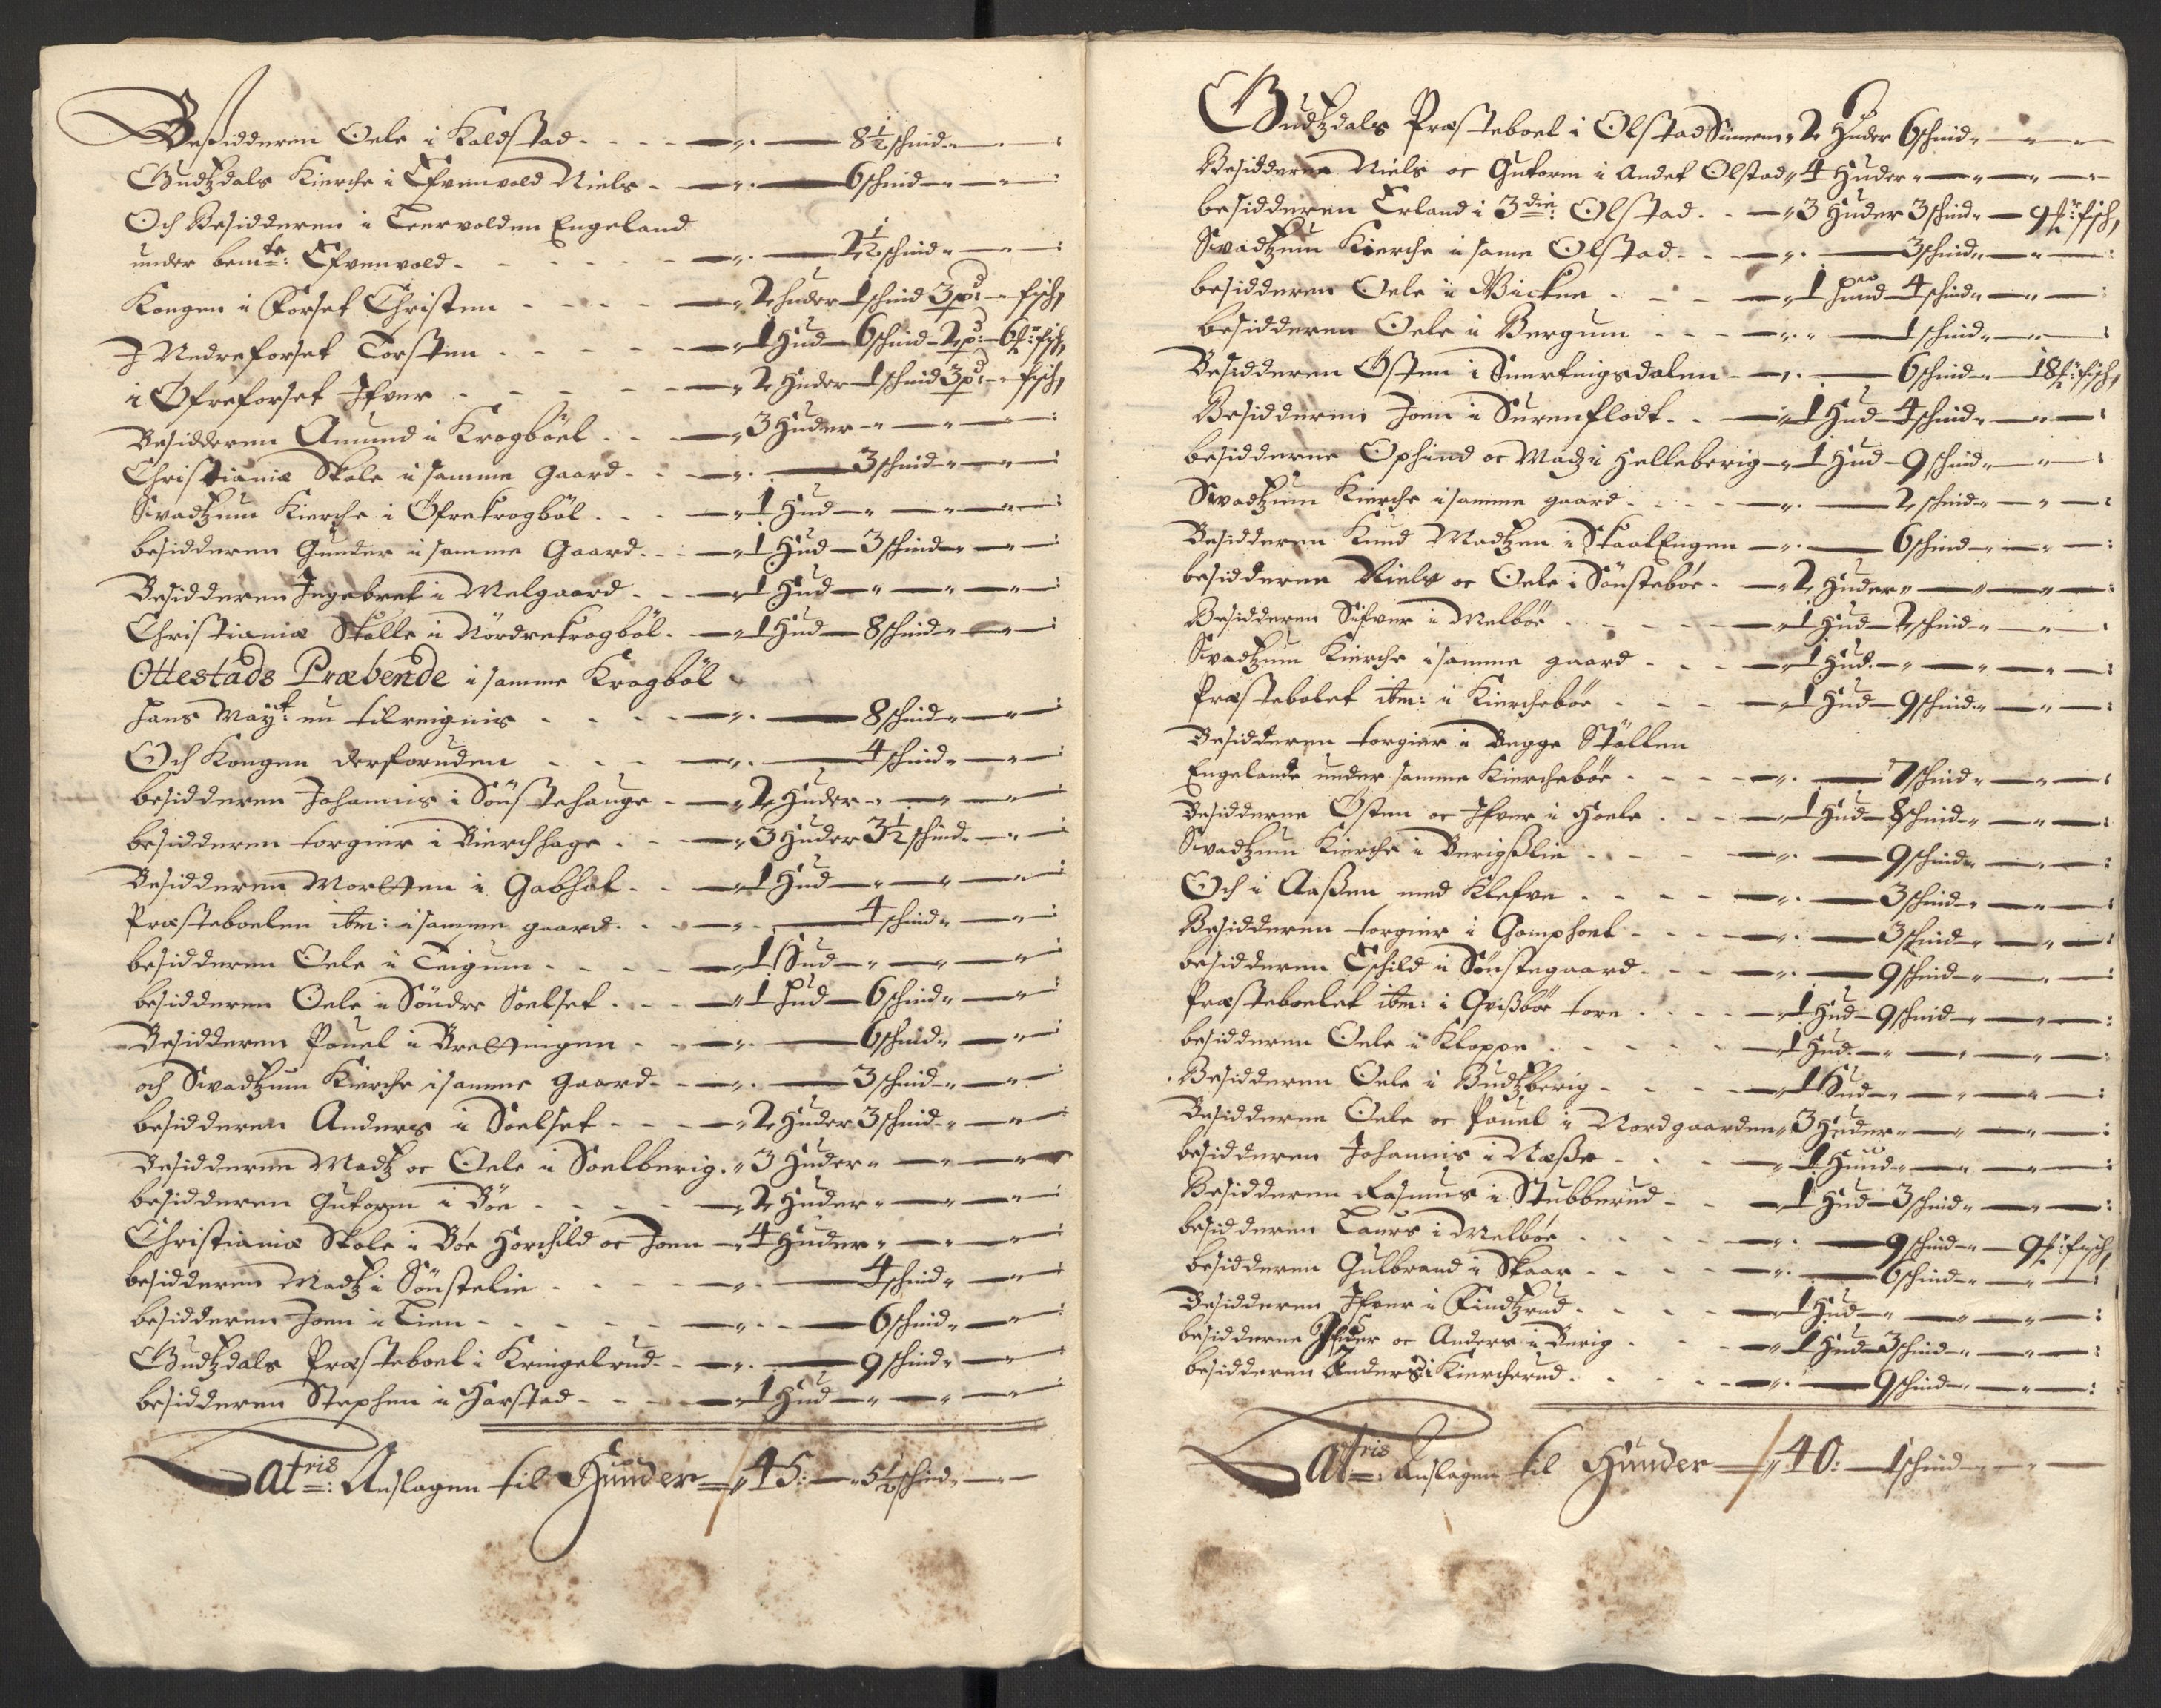 Besidderen Oele i Kaldstad - - - - " - 8½ schind - " - :
Gudtzdals Kierche i Efvenvold Niels - - " - 6 schind - " - :
Och Besidderen i Teervolden Engeland
under bemte: Efvenvold - - - " - 2½ schind - " - :
Kongen i Forset Christen - - - - " 2 huder 1 schind 3 pd: - fisch
I Nedreforset Torsten - - - - " 1 Hud - 6 schind - 2 pd: - 6 ℔: fisch
i Øfreforset Ifver - - - - " 2 Huder - 1 schind 3 pd: - fisch
Besidderen Amund i Krogböel - - " 3 Huder - " - " - :
Christianiæ Skole i samme gaard - - " - 3 schind - " - :
Svadtzum Kierche i Öfrekrogböl - - " 1 Hud - " - " - :
besidderen Gunder i samme Gaard - - " 1 Hud - 3 schind - " - :
Besidderen Ingebret i Melgaard - - " 1 Hud - " - " - :
Christianiæ Skolle i Nördrekrogböl - " 1 Hud - 8 schind - " - :
Ottestads Præbende i samme Krogböl
Hans Mayt: nu tilreignis - - - " - 8 schind - " - :
Och Kongen derforuden - - - " - 4 schind - " - :
besidderen Johannis i Sönstehauge - - " 2 Huder - " - " - :
besidderen torgier i Bierchhage - - " 3 Huder 3½ schind - " - :
Besidderen Morten i Gabhol - - " 1 Hud - " - " - :
Præsteboelen ibm: i samme gaard - - " - 4 schind - " - :
besidderen Oele i Teigum - - - " 1 Hud - " - " - :
besidderen Oele i Söndre Soelset - - " 1 Hud - 6 schind - " - :
Besidderen Pouel i Brettingen - - " - 6 schind - " - :
och Svadtzum Kierche i samme Gaard - - " - 3 schind - " - :
besidderen Anders i Soelset - - " 2 Huder 3 schind - " - :
Besidderne Madtz oc Oele i Soelberig - " 3 Huder - " - " -
besidderen Gutorm i Böe - - - - " 2 Huder - " - " - :
Christianiæ Skole i Böe Horchild oc Joen - " 4 Huder - " - " - :
besidderen Madtz i Sönstelie - - - " - 4 schind - " - :
besidderen Joen i Lien - - - - " - 6 schind - " - :
Gudtzdals Præsteboel i Kringelrud - - " - 9 schind - " - :
besidderen Stephen i Harstad - - - " 1 Hud - " - " - :
Latris: Anslagen til Hunder - " 45: - " 5½ schind - " -
Gudtzdals Præsteboel i Olstad Simen " 2 Huder 6 schind - " - "
Besidderne Niels oc Gutorm i Andet Olstad " 4 Huder - " - " -
besidderen Erland i 3die: Olstad - - " 3 Huder 3 schind - 9 ℔: fisch
Svadtzum Kierche i same Olstad - - " - 3 schind - " - :
besidderen Oele i Vicken - - - " 1 Hund - 4 schind - " - :
besidderen Oele i Bergum - - - " - 1 schind - " - :
Besidderen Östen i Snertingsdalen - " - 6 schind - 18 ℔: fisch
Besidderen Joen i Surenflodt - - " 1 Hud - 4 schind - " - :
besidderne Ophind oc Madz i Helleberig - " 1 Hud - 9 schind - " - :
Svadtzum Kierche i samme gaard - - " - 2 schind - " - :
Besidderen Knud Madtzen i Skaal Engen - " - 6 schind - " - :
besidderne Niels oc Oele i Sönsteböe - " 2 Huder " - " - :
Besidderen Sifver i Melböe - - - " 1 Hud - 2 schind - " - :
Svadtzum Kierche i samme gaard - - - " 1 Hud - " - " - :
Præstebolet ibm: i Kiercheböe - - - " 1 Hud - 9 schind - " - :
Besidderen torgier i Begge Stöllen
Engelande under samme Kiercheböe - - " - 7 schind - " - :
Besidderne Östen oc Ifver i Hoele - - " 1 Hud - 8 schind - " - :
Svadtzum Kierche i Berigslie - - - " - 9 schind - " - :
Och i Aaßen med Klefve - - - - " - 3 schind - " - :
Besidderen torgier i Gamphoel - - - " - 3 schind - " - :
besidderen Eschild i Sönstegaard - - " - 9 schind - " - :
Præsteboelet ibm: i Qvißböe tore - - " 1 Hud - 9 schind - " - :
besidderen Oele i Kloppe - - - - " 1 Hud - " - " - :
Besidderen Oele i Budtzberig - - - " 1 Hud - " - " - :
Besidderne Oele oc Pouel i Nordgaarden " 3 Huder - " - " - :
besidderen Johannis i Næße - - - " 1 Hund - " - " - :
Besidderen Rasmus i Stubberud - - " 1 Hud - 3 schind - " - :
besidderen Laurs i Melböe - - - " - 9 schind - " - 9 ℔: fisch
besidderen Gulbrand i Skaar - - - " - 6 schind - " - :
Besidderen Ifver i Findtzrud - - - " 1 Hud - " - " - :
besidderne Ifver oc Anders i Berig - - " 1 Hud - 3 schind - " - :
besidderen Anders i Kiercherud - - - " - 9 schind - " - :
Latris: Anslagen til Hunder - " 40: - 1 schind - " -